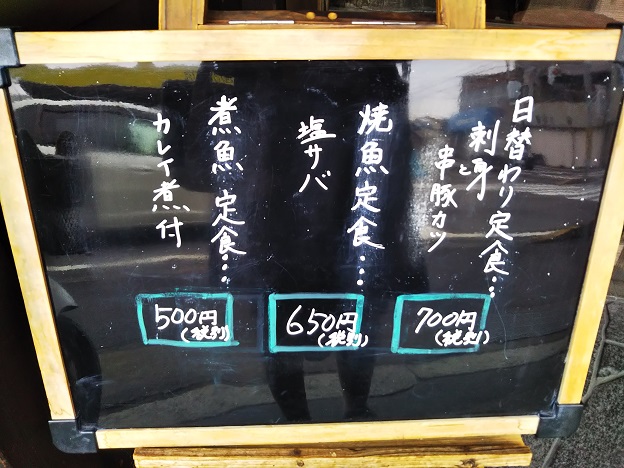 日替わり定食…
刺身と
串豚カツ
700円
(税別)
焼魚定食…
塩サバ
650円
(税別)
煮魚定食…
カレイ煮付
500円
(税別)